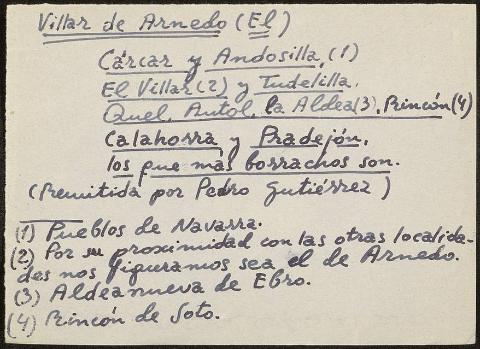 Villar de Arnedo (El)
Cárcar y Andosilla, (1)
El Villar (2) y Tudelilla.
Quel, Autol, la Aldea (3), Rincón (4)
Calahorra y Pradejón,
los que más borrachos son.
(Remitida por Pedro Gutiérrez)
(1) Pueblos de Navarra.
(2) Por su proximidad con las otras localida-
des nos figuramos sea el de Arnedo.
(3) Aldeanueva de Ebro.
(4) Rincón de Soto.